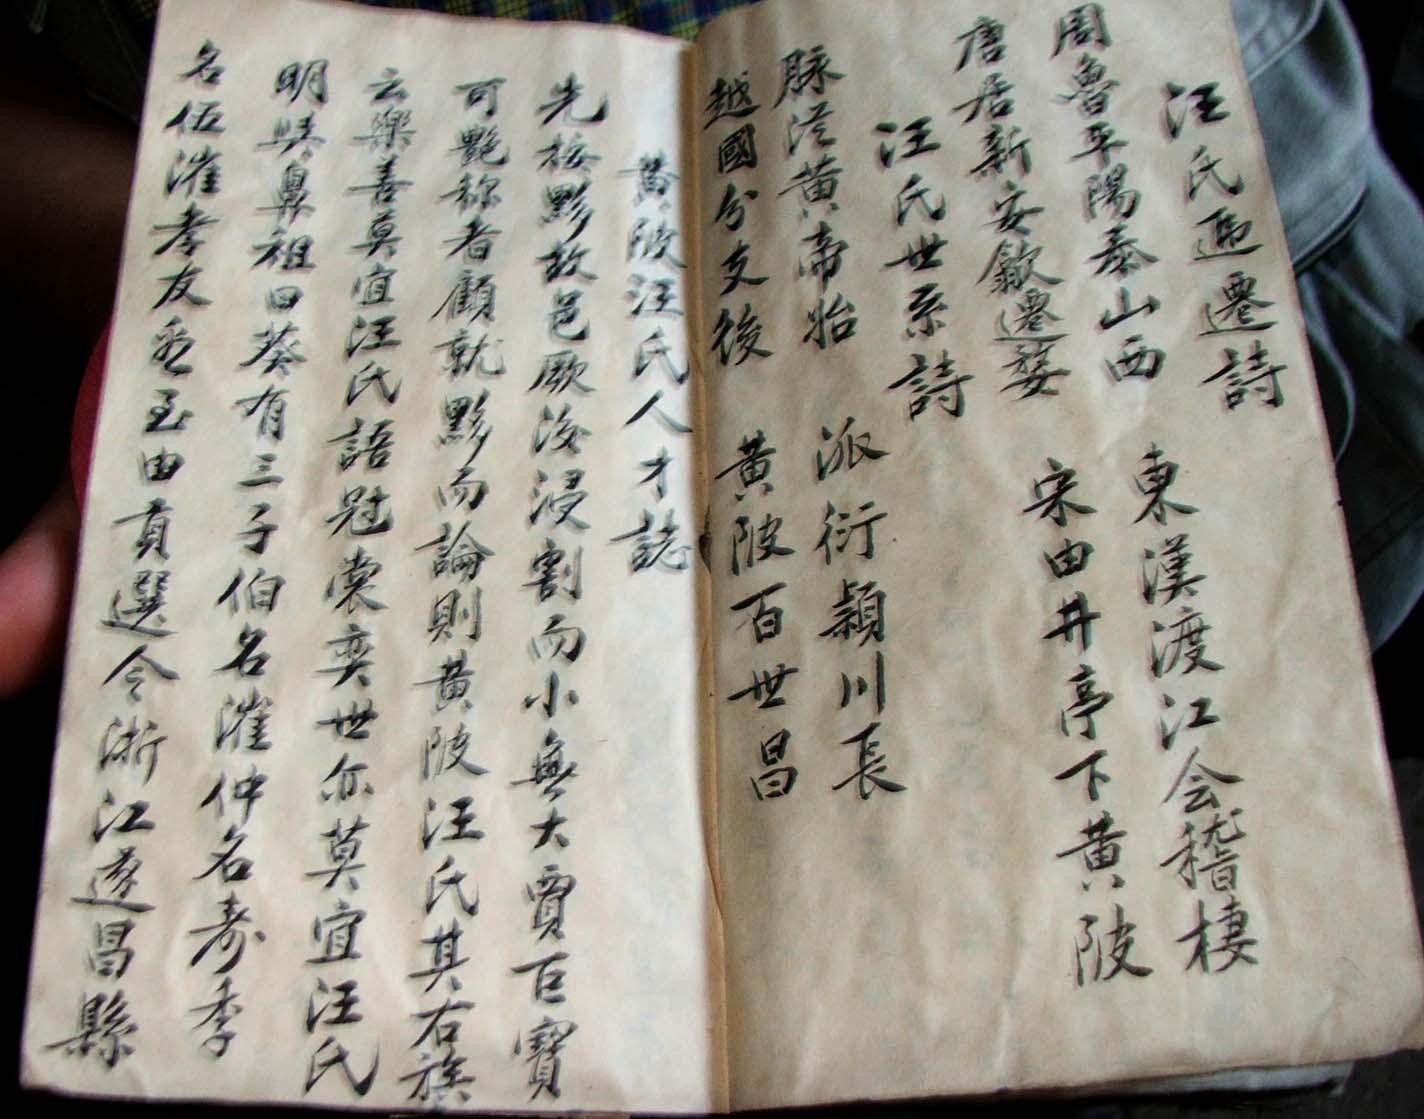 汪氏遷遷詩
周魯平陽泰山西　東漢渡江会稽棲
唐居新安歙遷婺　宋由井亭下黄陂
汪氏世系詩
脉淫黄帝始　派衍潁川長
越國分支後　黄陂百世昌
黄陂汪氏人才誌
先按黟故邑厥後浸割而小無大賈巨寶
可艷称者顧就黟而論則黄陂汪氏其右族
云樂善莫宜汪氏語冠裳奕世亦莫宜汪氏
明興鼻祖曰葵有三子伯名漼仲名寿季
名伍漼孝友玉由貢選令浙江遂昌縣